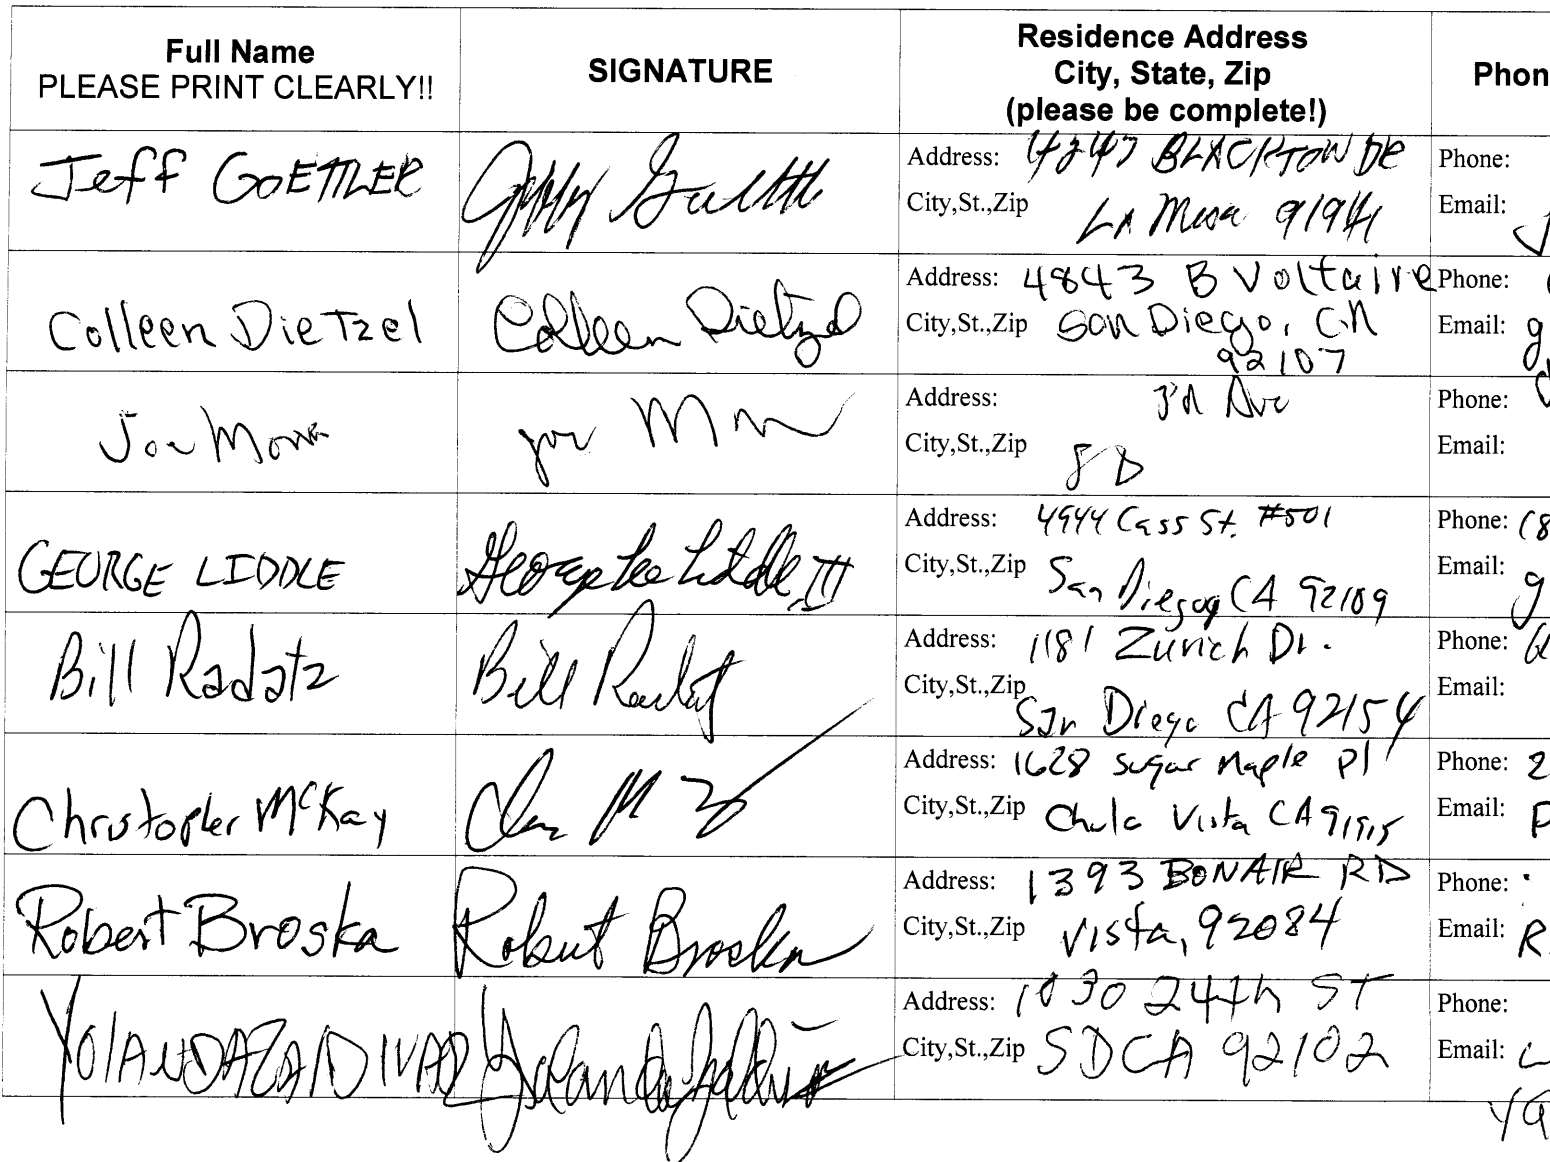 Full Name
PLEASE PRINT CLEARLY!!
SIGNATURE
Residence Address
City, State, Zip
(please be complete!)
Phon
Jeff GOETTLER
Address: 4347 BLACKTON DR
City,St.,Zip LA Mesa 91941
Phone:
Email: J
Colleen Dietzel
Colleen Dietzel
Address: 4843 B Voltaire
City,St.,Zip San Diego, CA
92107
Phone: (
Email: g
Joe
Joe
Address: 3rd Ave
City,St.,Zip SD
Phone:
Email:
GEORGE LIDDLE
George Lee Liddle, III
Address: 4944 Cass St. #501
City,St.,Zip San Diego CA 92109
Phone: (8
Email: g
Bill Radatz
Bill Radatz
Address: 1181 Zurich Dr.
City,St.,Zip San Diego CA 92154
Phone: 6
Email:
Christopher McKay
Address: 1628 Sugar Maple Pl
City,St.,Zip Chula Vista CA 91915
Phone: 2
Email: P
Robert Broska
Robert Broska
Address: 1393 BONAIR RD
City,St.,Zip Vista, 92084
Phone:
Email: R
YOLANDA ZADIVAR
Address: 1030 24th ST
City,St.,Zip SD CA 92102
Phone:
Email: L
ya